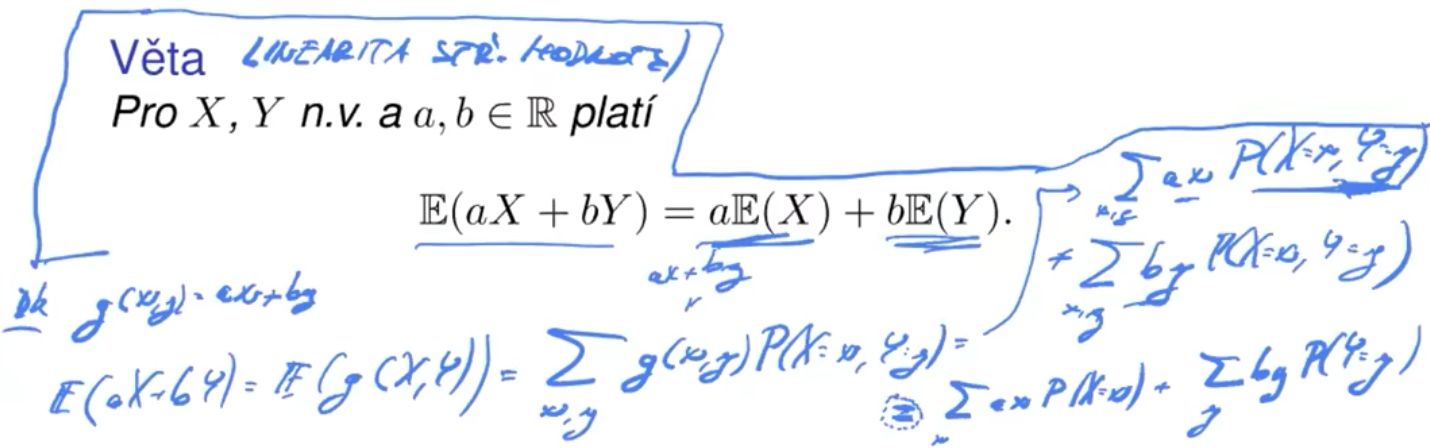 Věta LINEARITA STŘ. HODNOTY
Pro X, Y n.v. a a, b ∈ ℝ platí
𝔼(aX + bY) = a𝔼(X) + b𝔼(Y).
ax + by
Dk g(x,y) = ax + by
𝔼(aX + bY) = 𝔼(g(X,Y)) = ∑_{x,y} g(x,y) P(X=x, Y=y) =
→ ∑_{x,y} ax P(X=x, Y=y)
+ ∑_{x,y} by P(X=x, Y=y)
= ∑_x ax P(X=x) + ∑_y by P(Y=y)